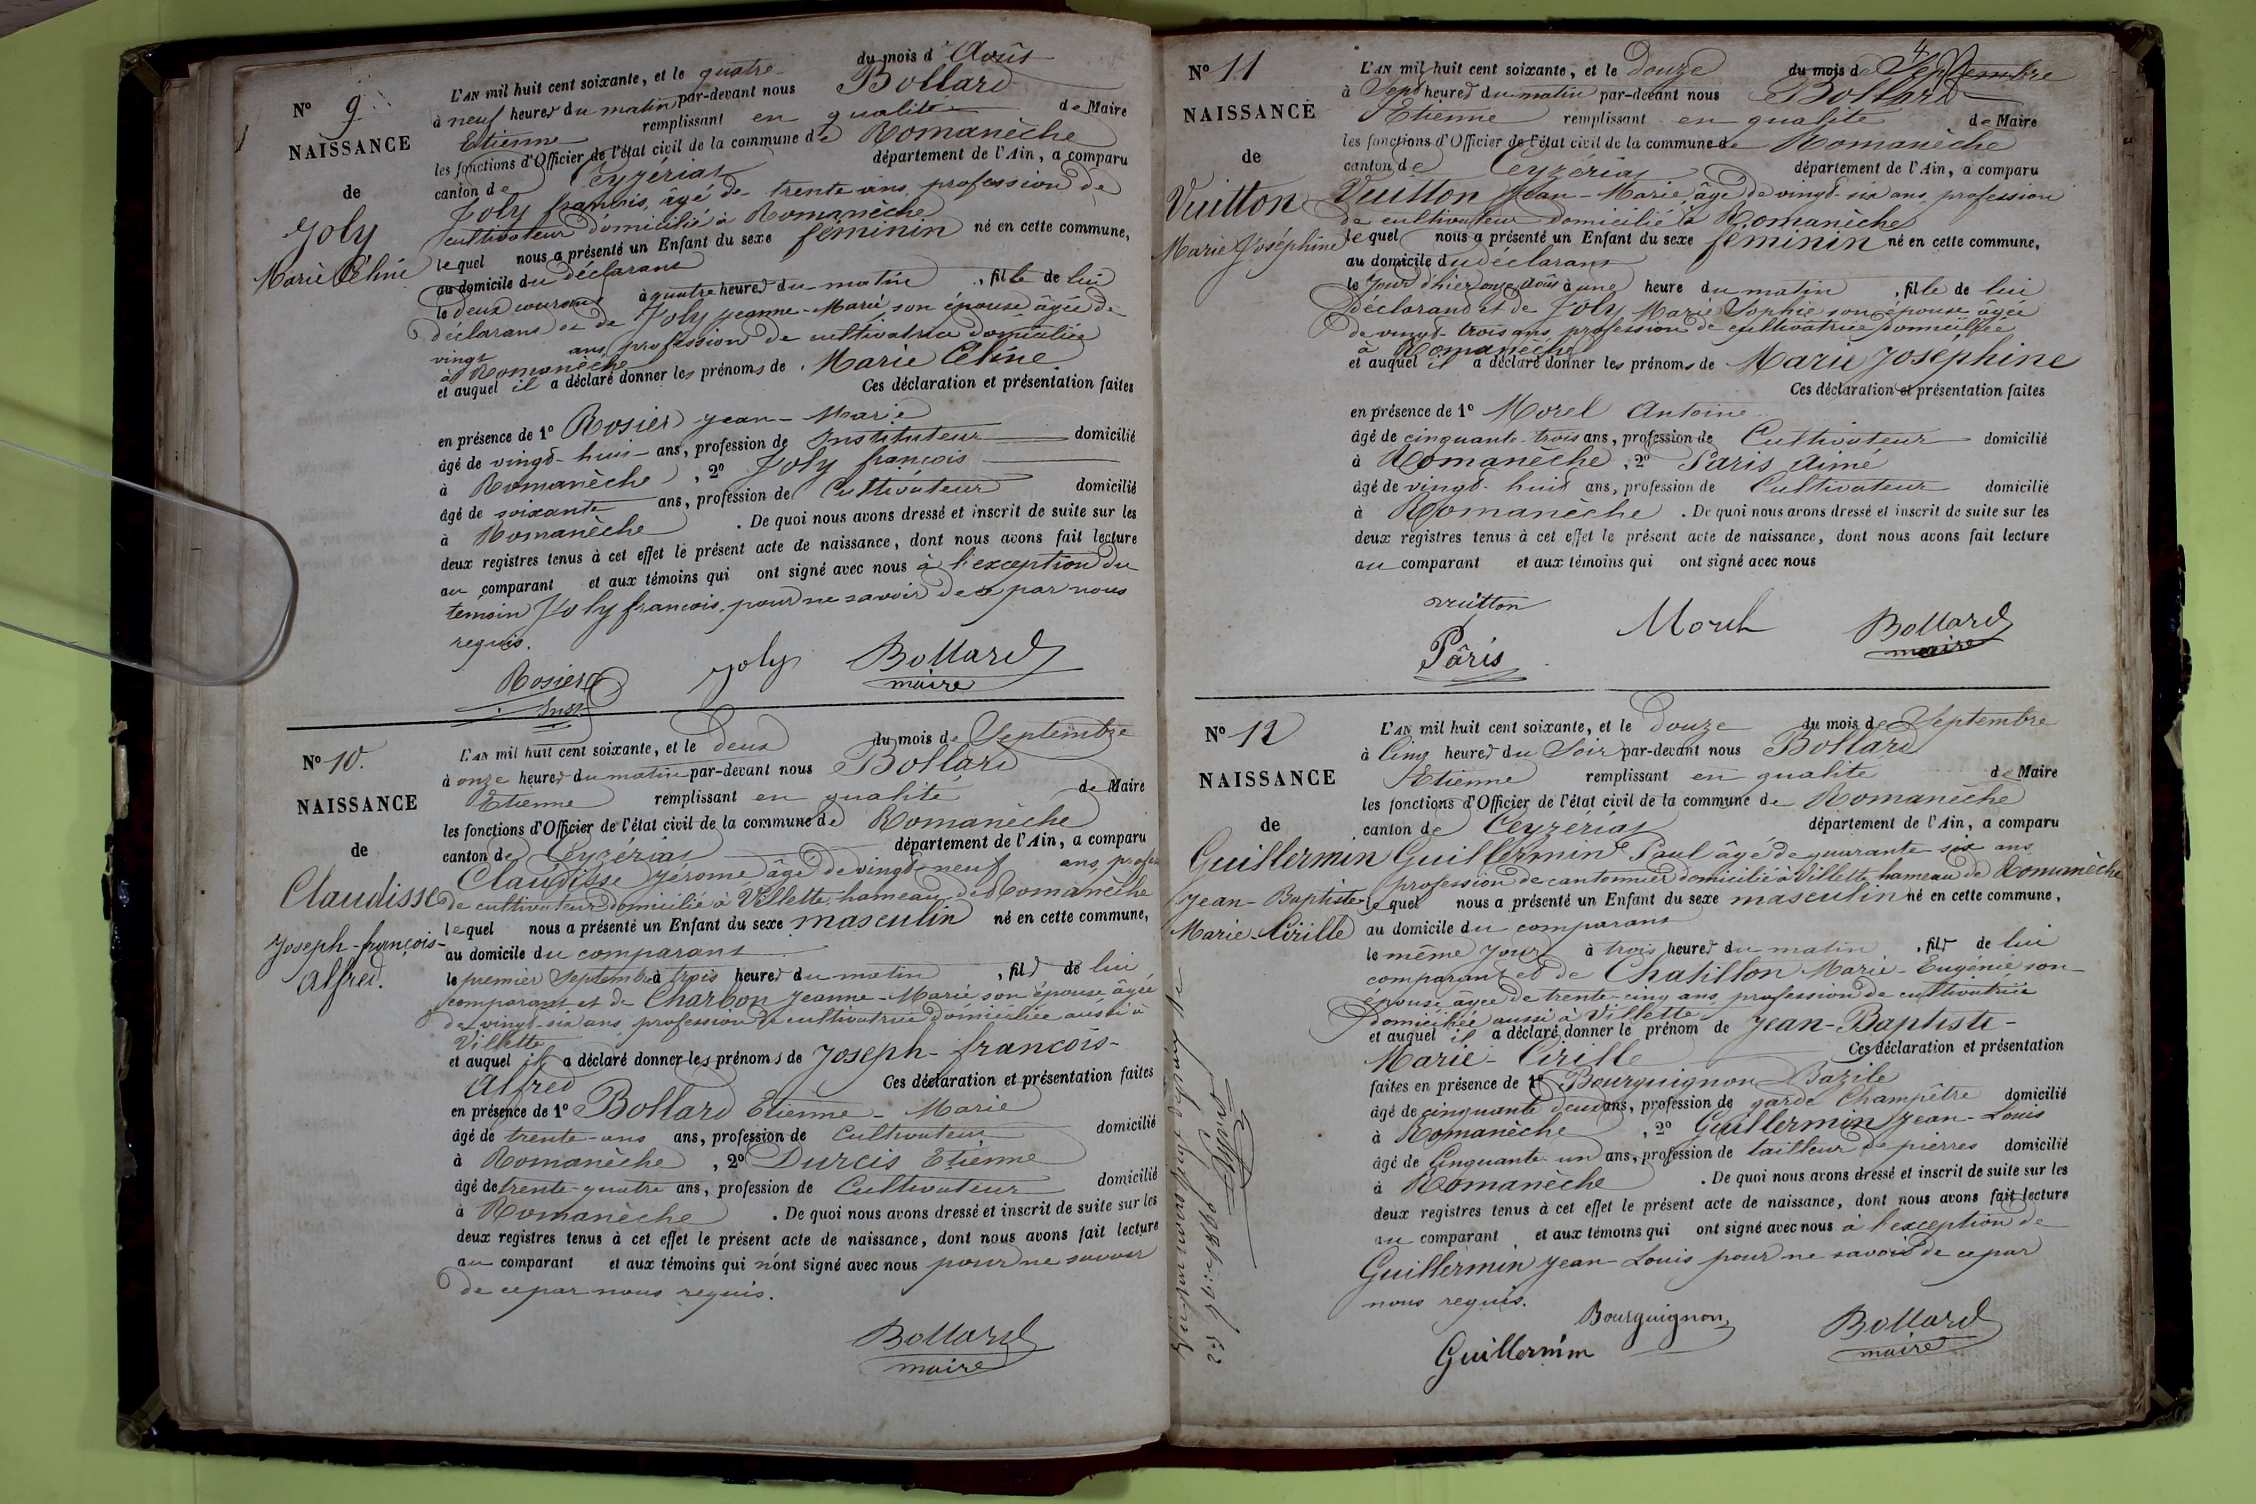 N° 9
NAISSANCE
de
Joly
Marie Céline
L'AN mil huit cent soixante, et le quatre du mois d'Août
à neuf heures du matin par-devant nous Bollard
Etienne remplissant en qualité de Maire
les fonctions d'Officier de l'état civil de la commune de Romanèche
canton de Ceyzériat département de l'Ain, a comparu
Joly françois, âgé de trente ans, profession de
cultivateur domicilié à Romanèche
lequel nous a présenté un Enfant du sexe féminin né en cette commune,
au domicile du déclarant
le deux courant à quatre heures du matin, fille de lui
déclarant et de Joly Jeanne-Marie son épouse âgée de
vingt ans, profession de cultivatrice domiciliée
à Romanèche
et auquel il a déclaré donner les prénoms de Marie Céline
Ces déclaration et présentation faites
en présence de 1° Rosier Jean-Marie
âgé de vingt-huit ans, profession de Instituteur domicilié
à Romanèche, 2° Joly françois
âgé de soixante ans, profession de Cultivateur domicilié
à Romanèche. De quoi nous avons dressé et inscrit de suite sur les
deux registres tenus à cet effet le présent acte de naissance, dont nous avons fait lecture
au comparant et aux témoins qui ont signé avec nous à l'exception du
témoin Joly françois, pour ne savoir de ce par nous
requis.
Rosier Joly Bollard
Inst. maire
N° 10.
NAISSANCE
de
Claudisse
Joseph-françois-
Alfred.
L'AN mil huit cent soixante, et le deux du mois de Septembre
à onze heures du matin par-devant nous Bollard
Etienne remplissant en qualité de Maire
les fonctions d'Officier de l'état civil de la commune de Romanèche
canton de Ceyzériat département de l'Ain, a comparu
Claudisse Jérome âgé de vingt-neuf ans, profession
de cultivateur domicilié à Villette hameau de Romanèche
lequel nous a présenté un Enfant du sexe masculin né en cette commune,
au domicile du comparant
le premier Septembre à trois heures du matin, fils de lui
comparant et de Charbon Jeanne-Marie son épouse âgée
de vingt-six ans, profession de cultivatrice domiciliée aussi à
Villette
et auquel il a déclaré donner les prénoms de Joseph-françois-
Alfred Ces déclaration et présentation faites
en présence de 1° Bollard Etienne-Marie
âgé de trente-ans ans, profession de Cultivateur domicilié
à Romanèche, 2° Durcis Etienne
âgé de trente-quatre ans, profession de Cultivateur domicilié
à Romanèche. De quoi nous avons dressé et inscrit de suite sur les
deux registres tenus à cet effet le présent acte de naissance, dont nous avons fait lecture
au comparant et aux témoins qui n'ont signé avec nous pour ne savoir
de ce par nous requis.
Bollard
maire
4
N° 11
NAISSANCE
de
Vuitton
Marie Joséphine
L'AN mil huit cent soixante, et le douze du mois de Septembre
à Sept heures du matin par-devant nous Bollard
Etienne remplissant en qualité de Maire
les fonctions d'Officier de l'état civil de la commune de Romanèche
canton de Ceyzériat département de l'Ain, a comparu
Vuitton Jean-Marie, âgé de vingt-six ans, profession
de cultivateur domicilié à Romanèche
lequel nous a présenté un Enfant du sexe féminin né en cette commune,
au domicile du déclarant
le Jour d'hier onze Août à une heure du matin, fille de lui
déclarant et de Joly Marie Sophie son épouse âgée
de vingt-trois ans, profession de cultivatrice domiciliée
à Romanèche
et auquel il a déclaré donner les prénoms de Marie Joséphine
Ces déclaration et présentation faites
en présence de 1° Morel Antoine
âgé de cinquante-trois ans, profession de Cultivateur domicilié
à Romanèche, 2° Paris Aimé
âgé de vingt-huit ans, profession de Cultivateur domicilié
à Romanèche. De quoi nous avons dressé et inscrit de suite sur les
deux registres tenus à cet effet le présent acte de naissance, dont nous avons fait lecture
au comparant et aux témoins qui ont signé avec nous
vuitton Morel Bollard
Pâris maire
N° 12
NAISSANCE
de
Guillermin
Jean-Baptiste
Marie-Cirille
L'AN mil huit cent soixante, et le douze du mois de Septembre
à Cinq heures du Soir par-devant nous Bollard
Etienne remplissant en qualité de Maire
les fonctions d'Officier de l'état civil de la commune de Romanèche
canton de Ceyzériat département de l'Ain, a comparu
Guillermin Paul âgé de quarante-six ans
profession de cantonnier domicilié à Villette hameau de Romanèche
lequel nous a présenté un Enfant du sexe masculin né en cette commune,
au domicile du comparant
le même Jour à trois heures du matin, fils de lui
comparant et de Chatillon Marie-Eugénie son
épouse âgée de trente-cinq ans, profession de cultivatrice
domiciliée aussi à Villette
et auquel il a déclaré donner le prénom de Jean-Baptiste-
Marie-Cirille Ces déclaration et présentation
faites en présence de 1° Bourguignon Bazile
âgé de cinquante deux ans, profession de garde Champêtre domicilié
à Romanèche, 2° Guillermin Jean-Louis
âgé de Cinquante-un ans, profession de tailleur de pierres domicilié
à Romanèche. De quoi nous avons dressé et inscrit de suite sur les
deux registres tenus à cet effet le présent acte de naissance, dont nous avons fait lecture
au comparant et aux témoins qui ont signé avec nous à l'exception de
Guillermin Jean-Louis pour ne savoir de ce par
nous requis.
Bourguignon Bollard
Guillermin maire